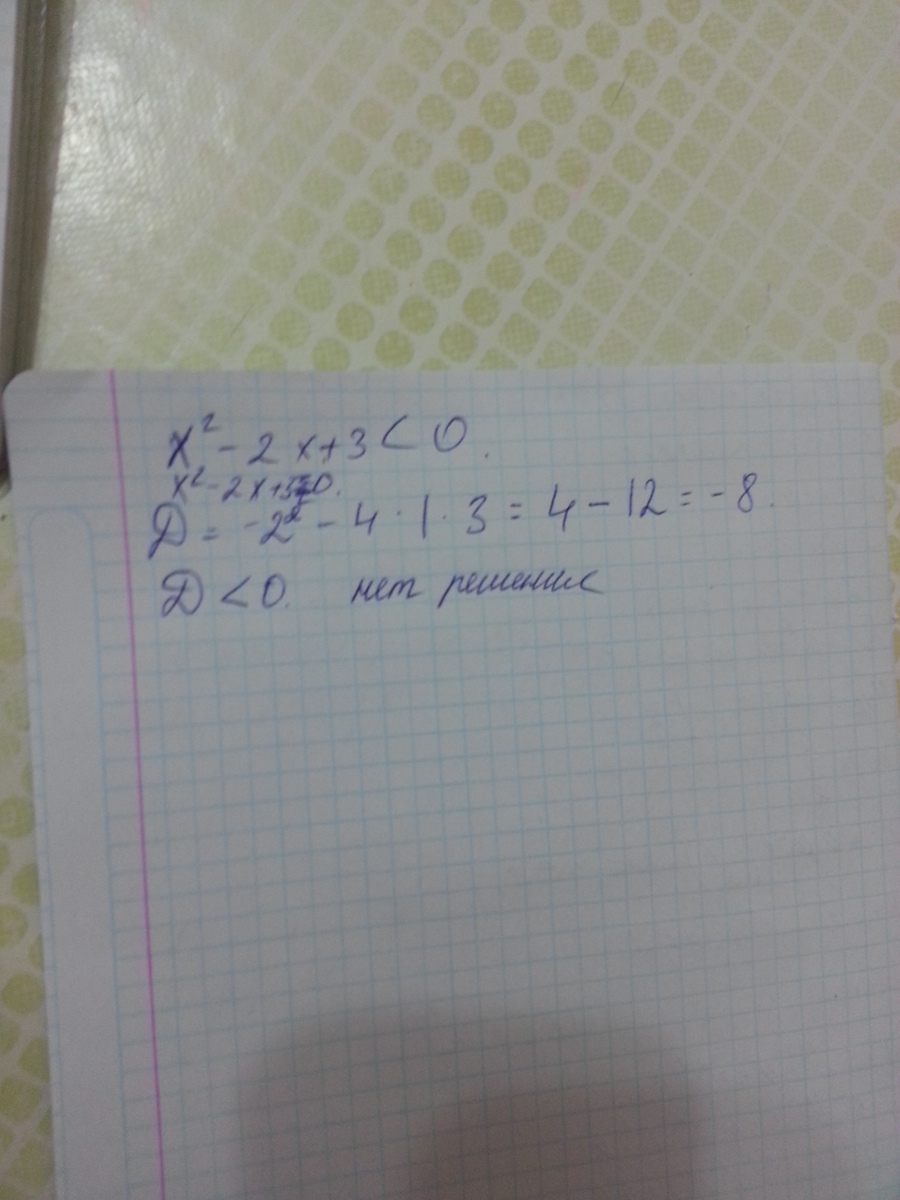 x² - 2x + 3 < 0.
x² - 2x + 3 = 0.
D = -2² - 4 · 1 · 3 = 4 - 12 = -8.
D < 0. нет решение